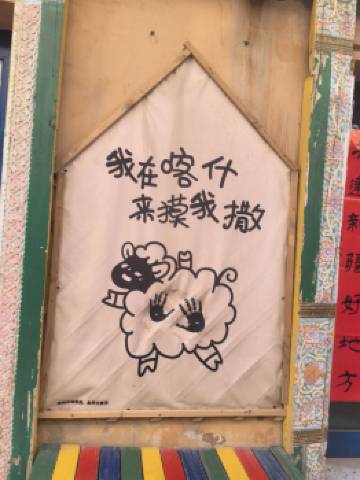 我在喀什
来摸我撒
新疆好地方